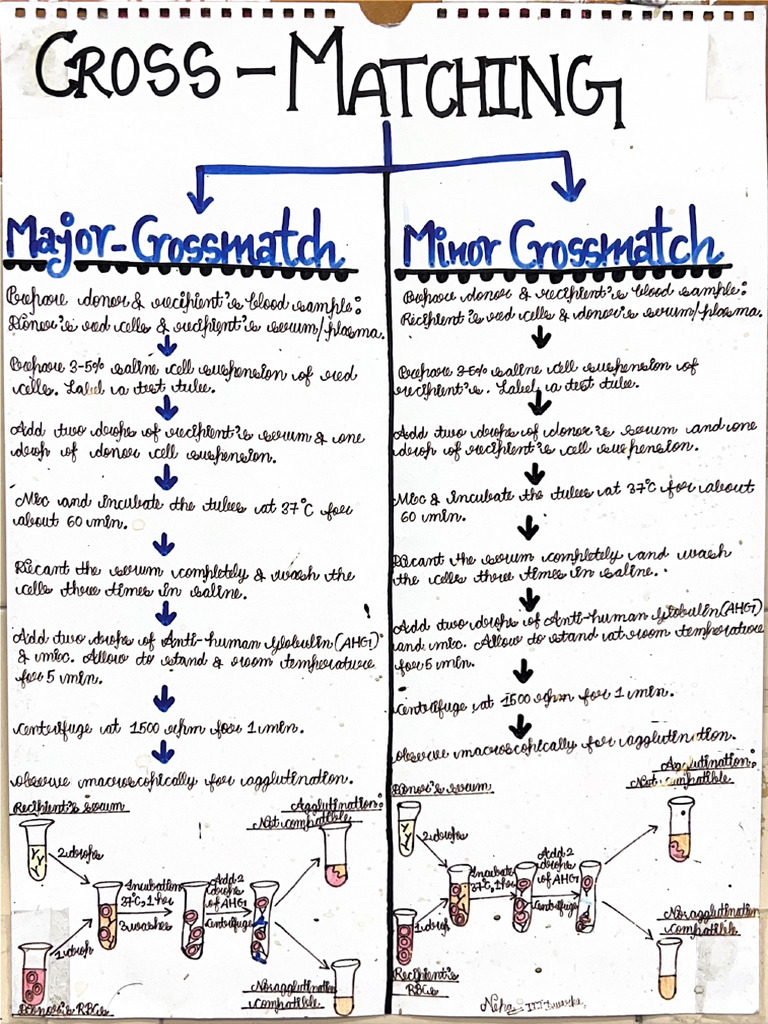 CROSS - MATCHING
Major-Crossmatch
Prepare donor & recipient's blood sample:
Donor's red cells & recipient's serum/plasma.
Prepare 3-5% saline cell suspension of red
cells. Label a test tube.
Add two drops of recipient's serum & one
drop of donor cell suspension.
Mix and incubate the tubes at 37°C for
about 60 min.
Decant the serum completely & wash the
cells three times in saline.
Add two drops of Anti-human Globulin(AHG)
& mix. Allow to stand & room temperature
for 5 min.
Centrifuge at 1500 rpm for 1 min.
observe macroscopically for agglutination.
Recipient's serum
Agglutination:
Not compatible
2 drops
Incubation
37°C, 1 hr
3 washes
Add 2
drops
of AHG
Centrifuge
1 drop
No agglutination
compatible
Donor's RBCs
Minor Crossmatch
Prepare donor & recipient's blood sample:
Recipient's red cells & donor's serum/plasma.
Prepare 3-5% saline cell suspension of
recipient's. Label a test tube.
Add two drops of donor's serum and one
drop of recipient's cell suspension.
Mix & incubate the tubes at 37°C for about
60 min.
Decant the serum completely and wash
the cells three times in saline.
Add two drops of Anti-human Globulin(AHG)
and mix. Allow to stand at room temperature
for 5 min.
Centrifuge at 1500 rpm for 1 min.
observe macroscopically for agglutination.
Donor's serum
Agglutination:
Not compatible
2 drops
Incubate
37°C, 1 hr
Add 2
drops
of AHG
Centrifuge
1 drop
No agglutination
compatible
Recipient's
RBCs
Neha